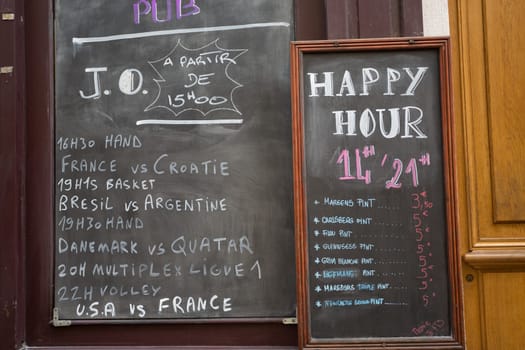 PUB
J.O.
A PARTIR
DE
15H00
16H30 HAND
FRANCE VS CROATIE
19H15 BASKET
BRESIL VS ARGENTINE
19H30 HAND
DANEMARK VS QUATAR
20H MULTIPLEX LIGUE 1
22H VOLLEY
U.S.A VS FRANCE
HAPPY
HOUR
14H 21H
PINT
CARLSBERG PINT
PINT
GUINNESS PINT
GRIM BLANCHE PINT
PINT
TRIPLE PINT
PINT